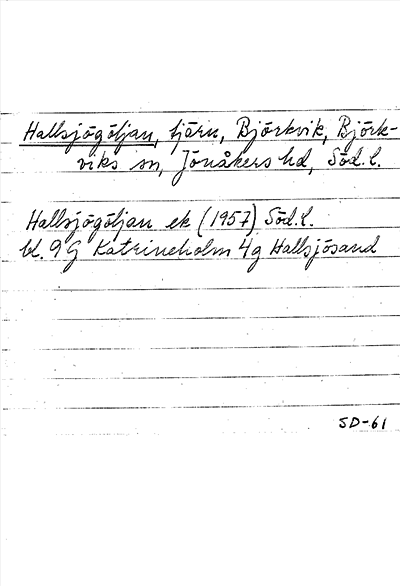 Hallsjögöljan, tjärn, Björkvik, Björk-
viks sn, Jönåkers hd, Söd.l.
Hallsjögöljan ek (1957) Söd.l.
bl. 9G Katrineholm 4g Hallsjösand
SD-61